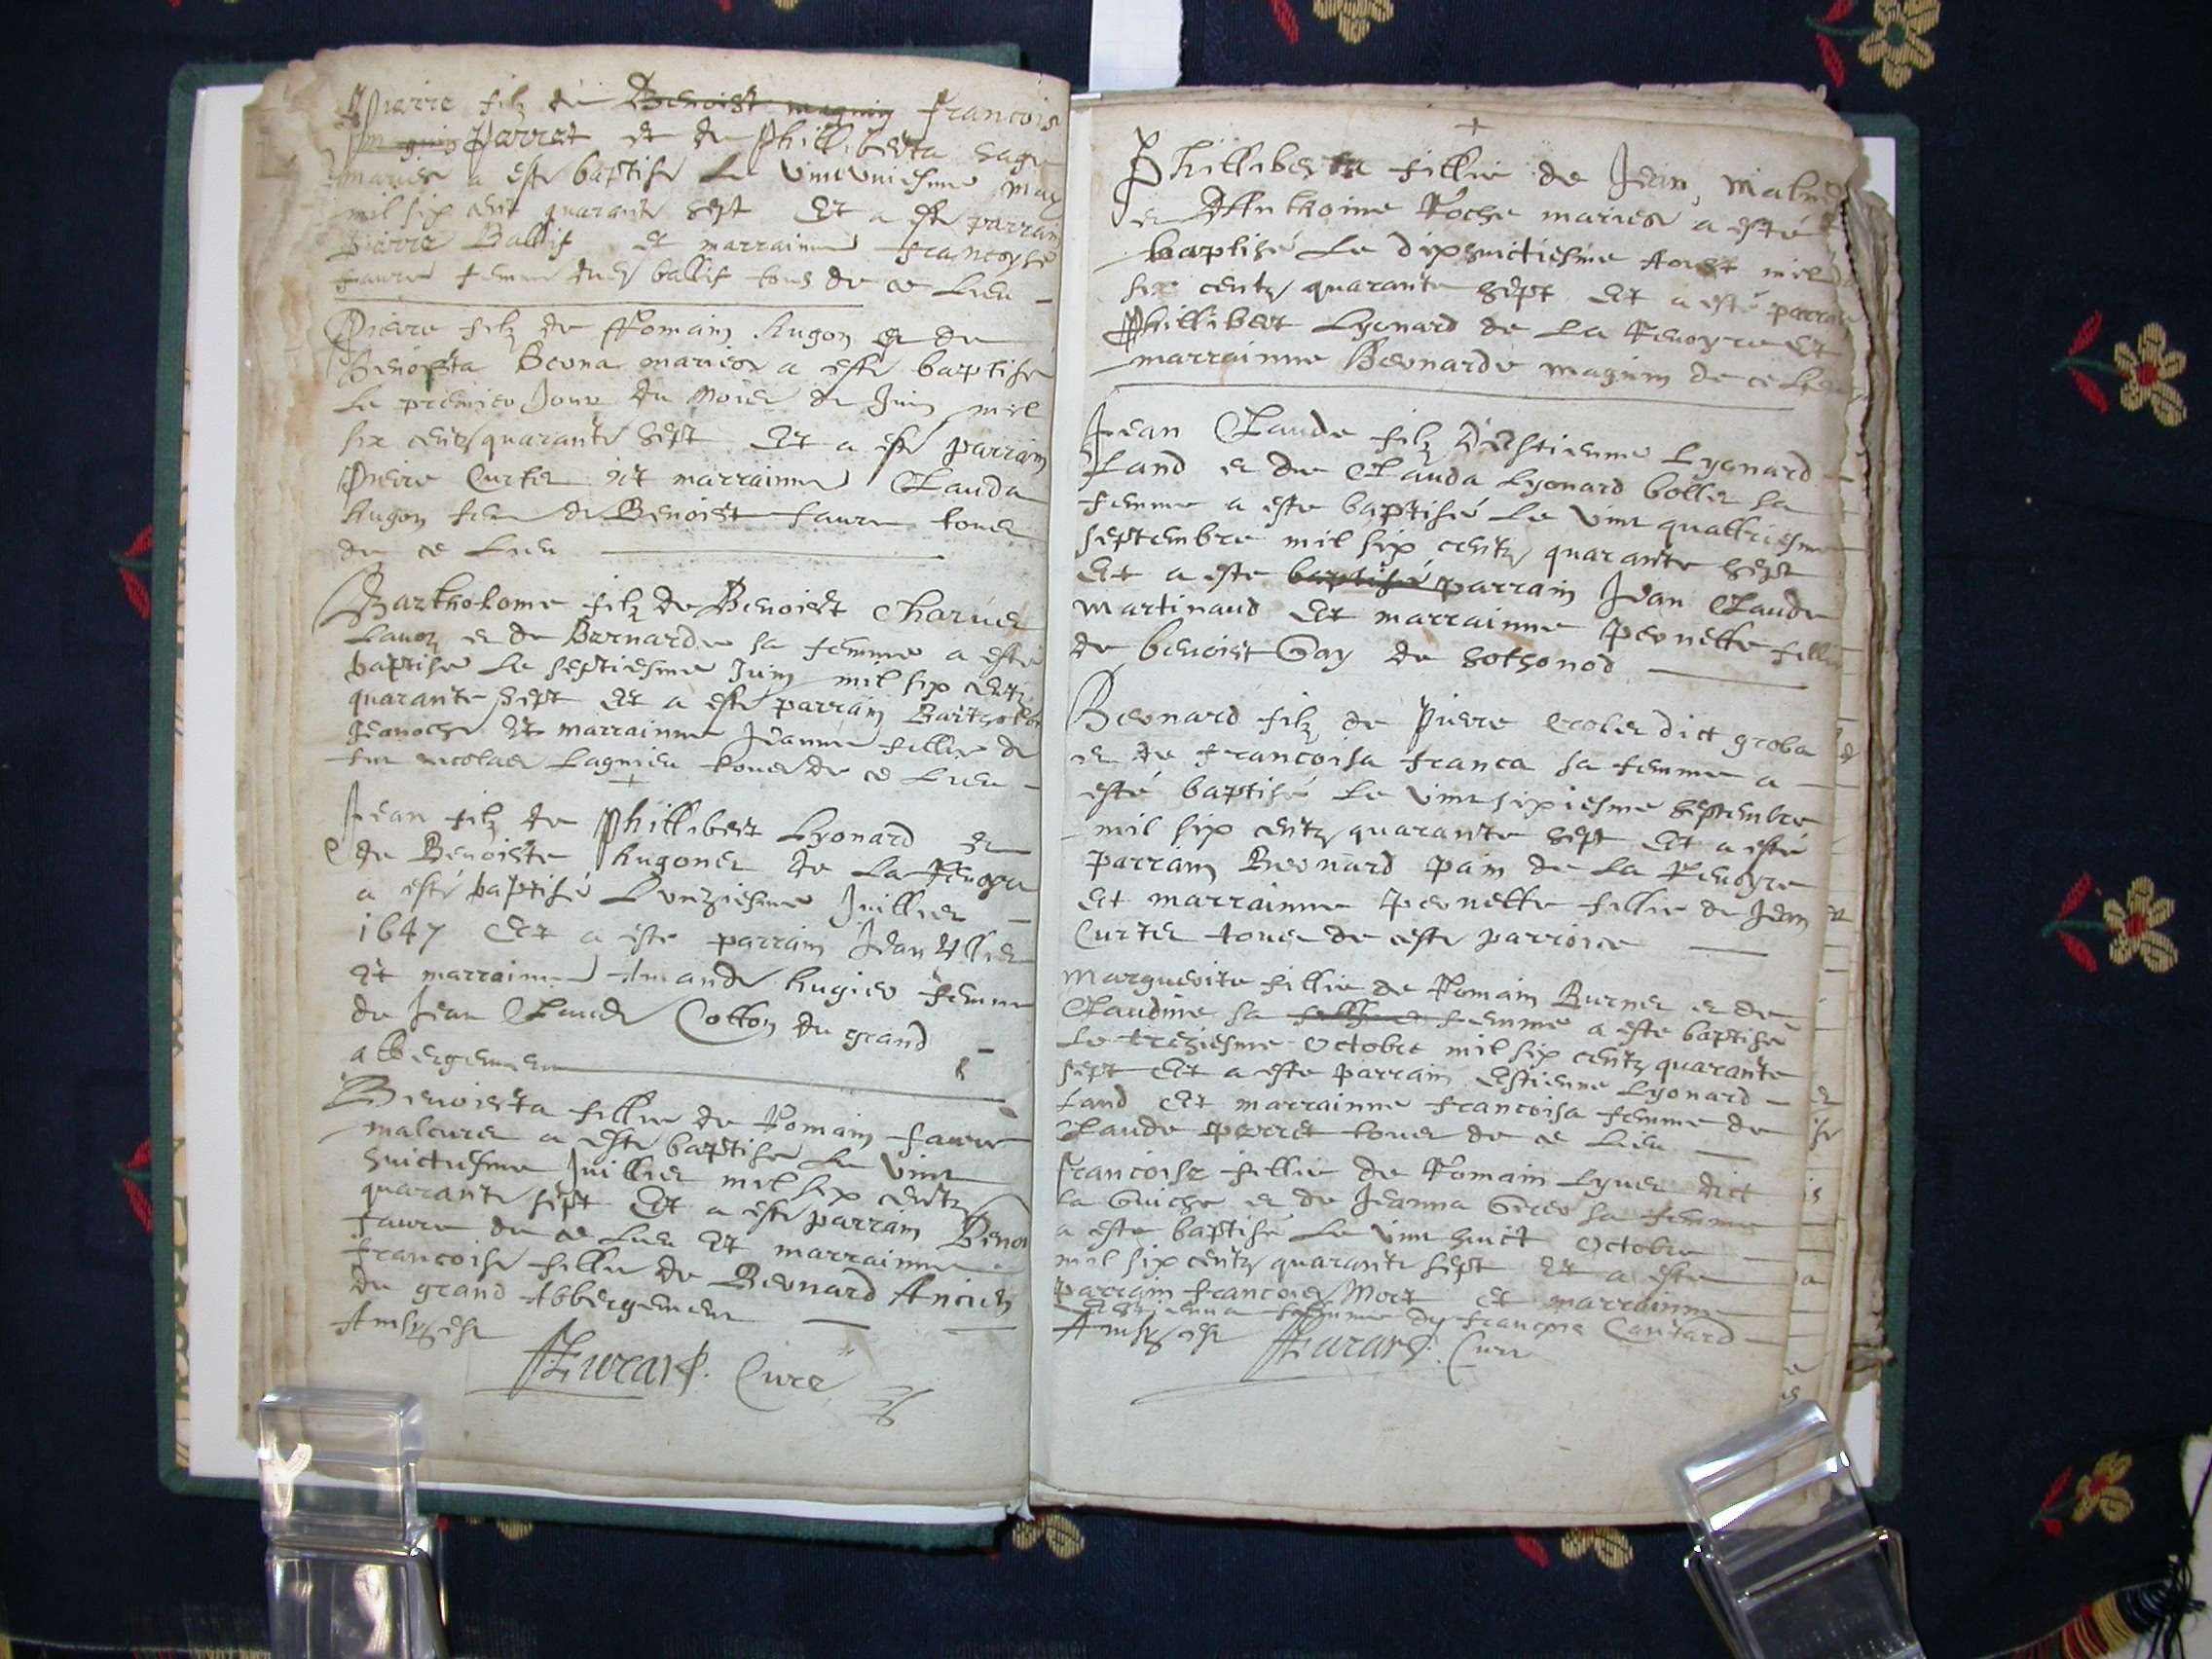 Pierre filz de Benoist magnin francois
Parret et de Philliberta sage
maries a este baptise le vintuniesme may
mil six cent quarante sept Et a este parrain
pierre Ballif et marrainne francoyse
faure femme dud ballif tous de ce lieu
Pierre filz de Romain hugon et de
Benoista Berna maries a este baptise
le premier Jour du mois de Juin mil
six centz quarante sept Et a este parrain
Pierre Curtet Et marrainne Clauda
hugon de Benoist faure tous
de ce lieu
Bartholome filz de Benoist Charvet
et de Bernarde sa femme a esté
baptise le septiesme Juin mil six centz
quarante sept Et a este parrain
Et marrainne Jeanne fillie de
feu nicolas Lagnieu tous de ce lieu
Jean filz de Phillibert Lyonard et
de Benoiste hugonet de la
a esté baptisé Lunziesme Juillier
1647 Et a este parrain Jean
Et marrainne Amande hugier femme
de Jean Claude Cotton du grand
abbergement
Benoista fillie de Romain faure
a este baptise le vint
huictiesme Juillier mil six centz
quarante sept Et a este parrain Benoi
faure de ce lieu Et marrainne
francoise fillie de Bernard Ancian
du grand Abbergement
Ainsy est
Curé
Philliberta fillie de Jean
et Anthoine Roche maries a esté
baptisé le dixhuictiesme Aoust mil
six centz quarante sept Et a esté parrain
Phillibert Lyonard de la Et
marrainne Bernarde magnin de ce lieu
Jean Claude filz D'Estienne Lyonard
Land et de Clauda Lyonard bollet sa
femme a este baptisé le vint quattriesme
septembre mil six centz quarante sept
Et a este baptisé parrain Jean Claude
Martinaud Et marrainne pernette fillie
de benoist Gay de sothonod
Bernard filz de Pierre Crolet dict groba
et de francoisa franca sa femme a
esté baptisé le vintsixiesme septembre
mil six centz quarante sept Et a esté
parrain Bernard pain de la
Et marrainne pernette fillie de Jean
Curtet tous de ceste parroice
Marguerite fillie de Romain Burnet et de
Claudine sa femme a este baptisé
le treziesme Octobre mil six centz quarante
sept Et a este parrain Estienne Lyonard
Land Et marrainne francoisa femme de
Claude perret tous de ce lieu
francoise fillie de Romain Lyvet dict
la Guiche et de Jeanna sa femme
a este baptisé le vint huict Octobre
mil six centz quarante sept Et a este
parrain francois Mort et marrainne
Estienna femme de francois Cantard
Ainsy est Curé